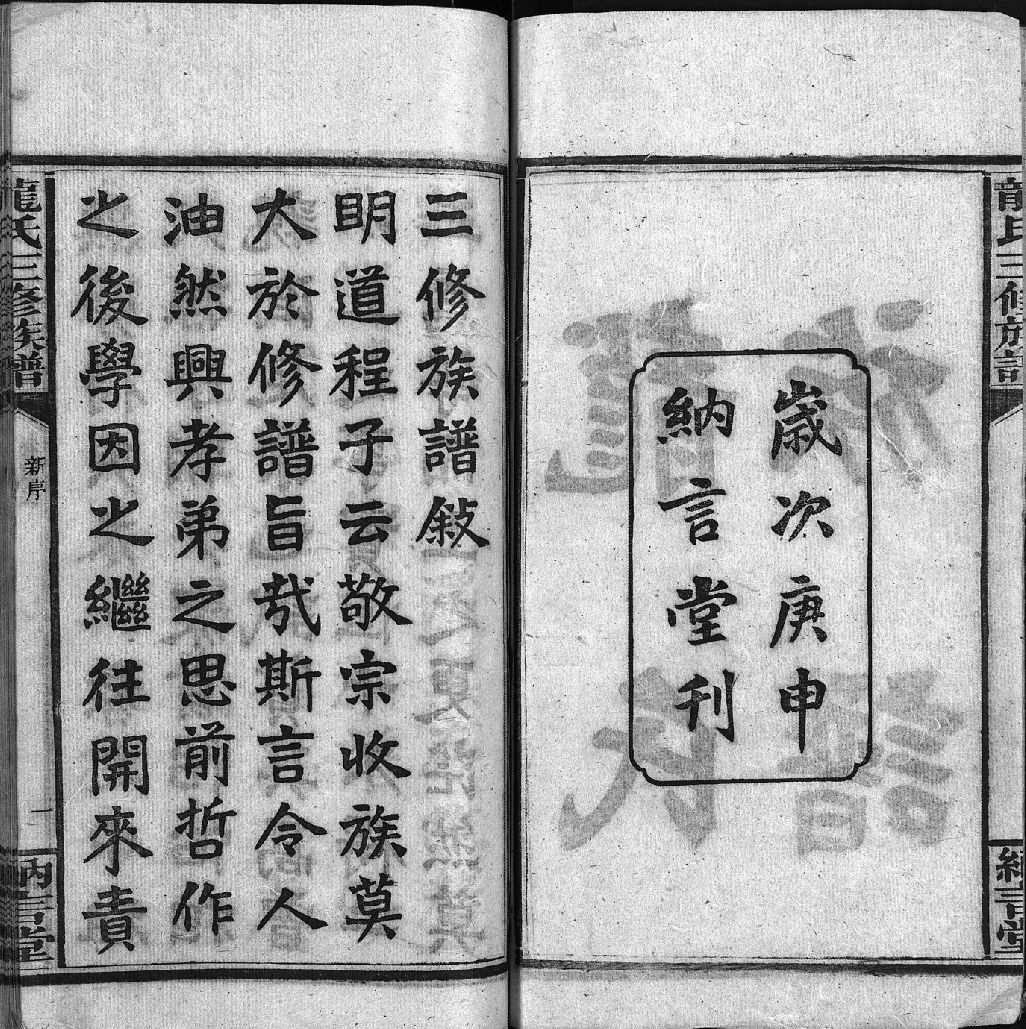 龍氏三修族譜
納言堂
歲次庚申
納言堂刊
三修族譜敍
明道程子云敬宗收族莫
大於修譜旨哉斯言令人
油然興孝弟之思前哲作
之後學因之繼往開來責
龍氏三修族譜
新序
一
納言堂